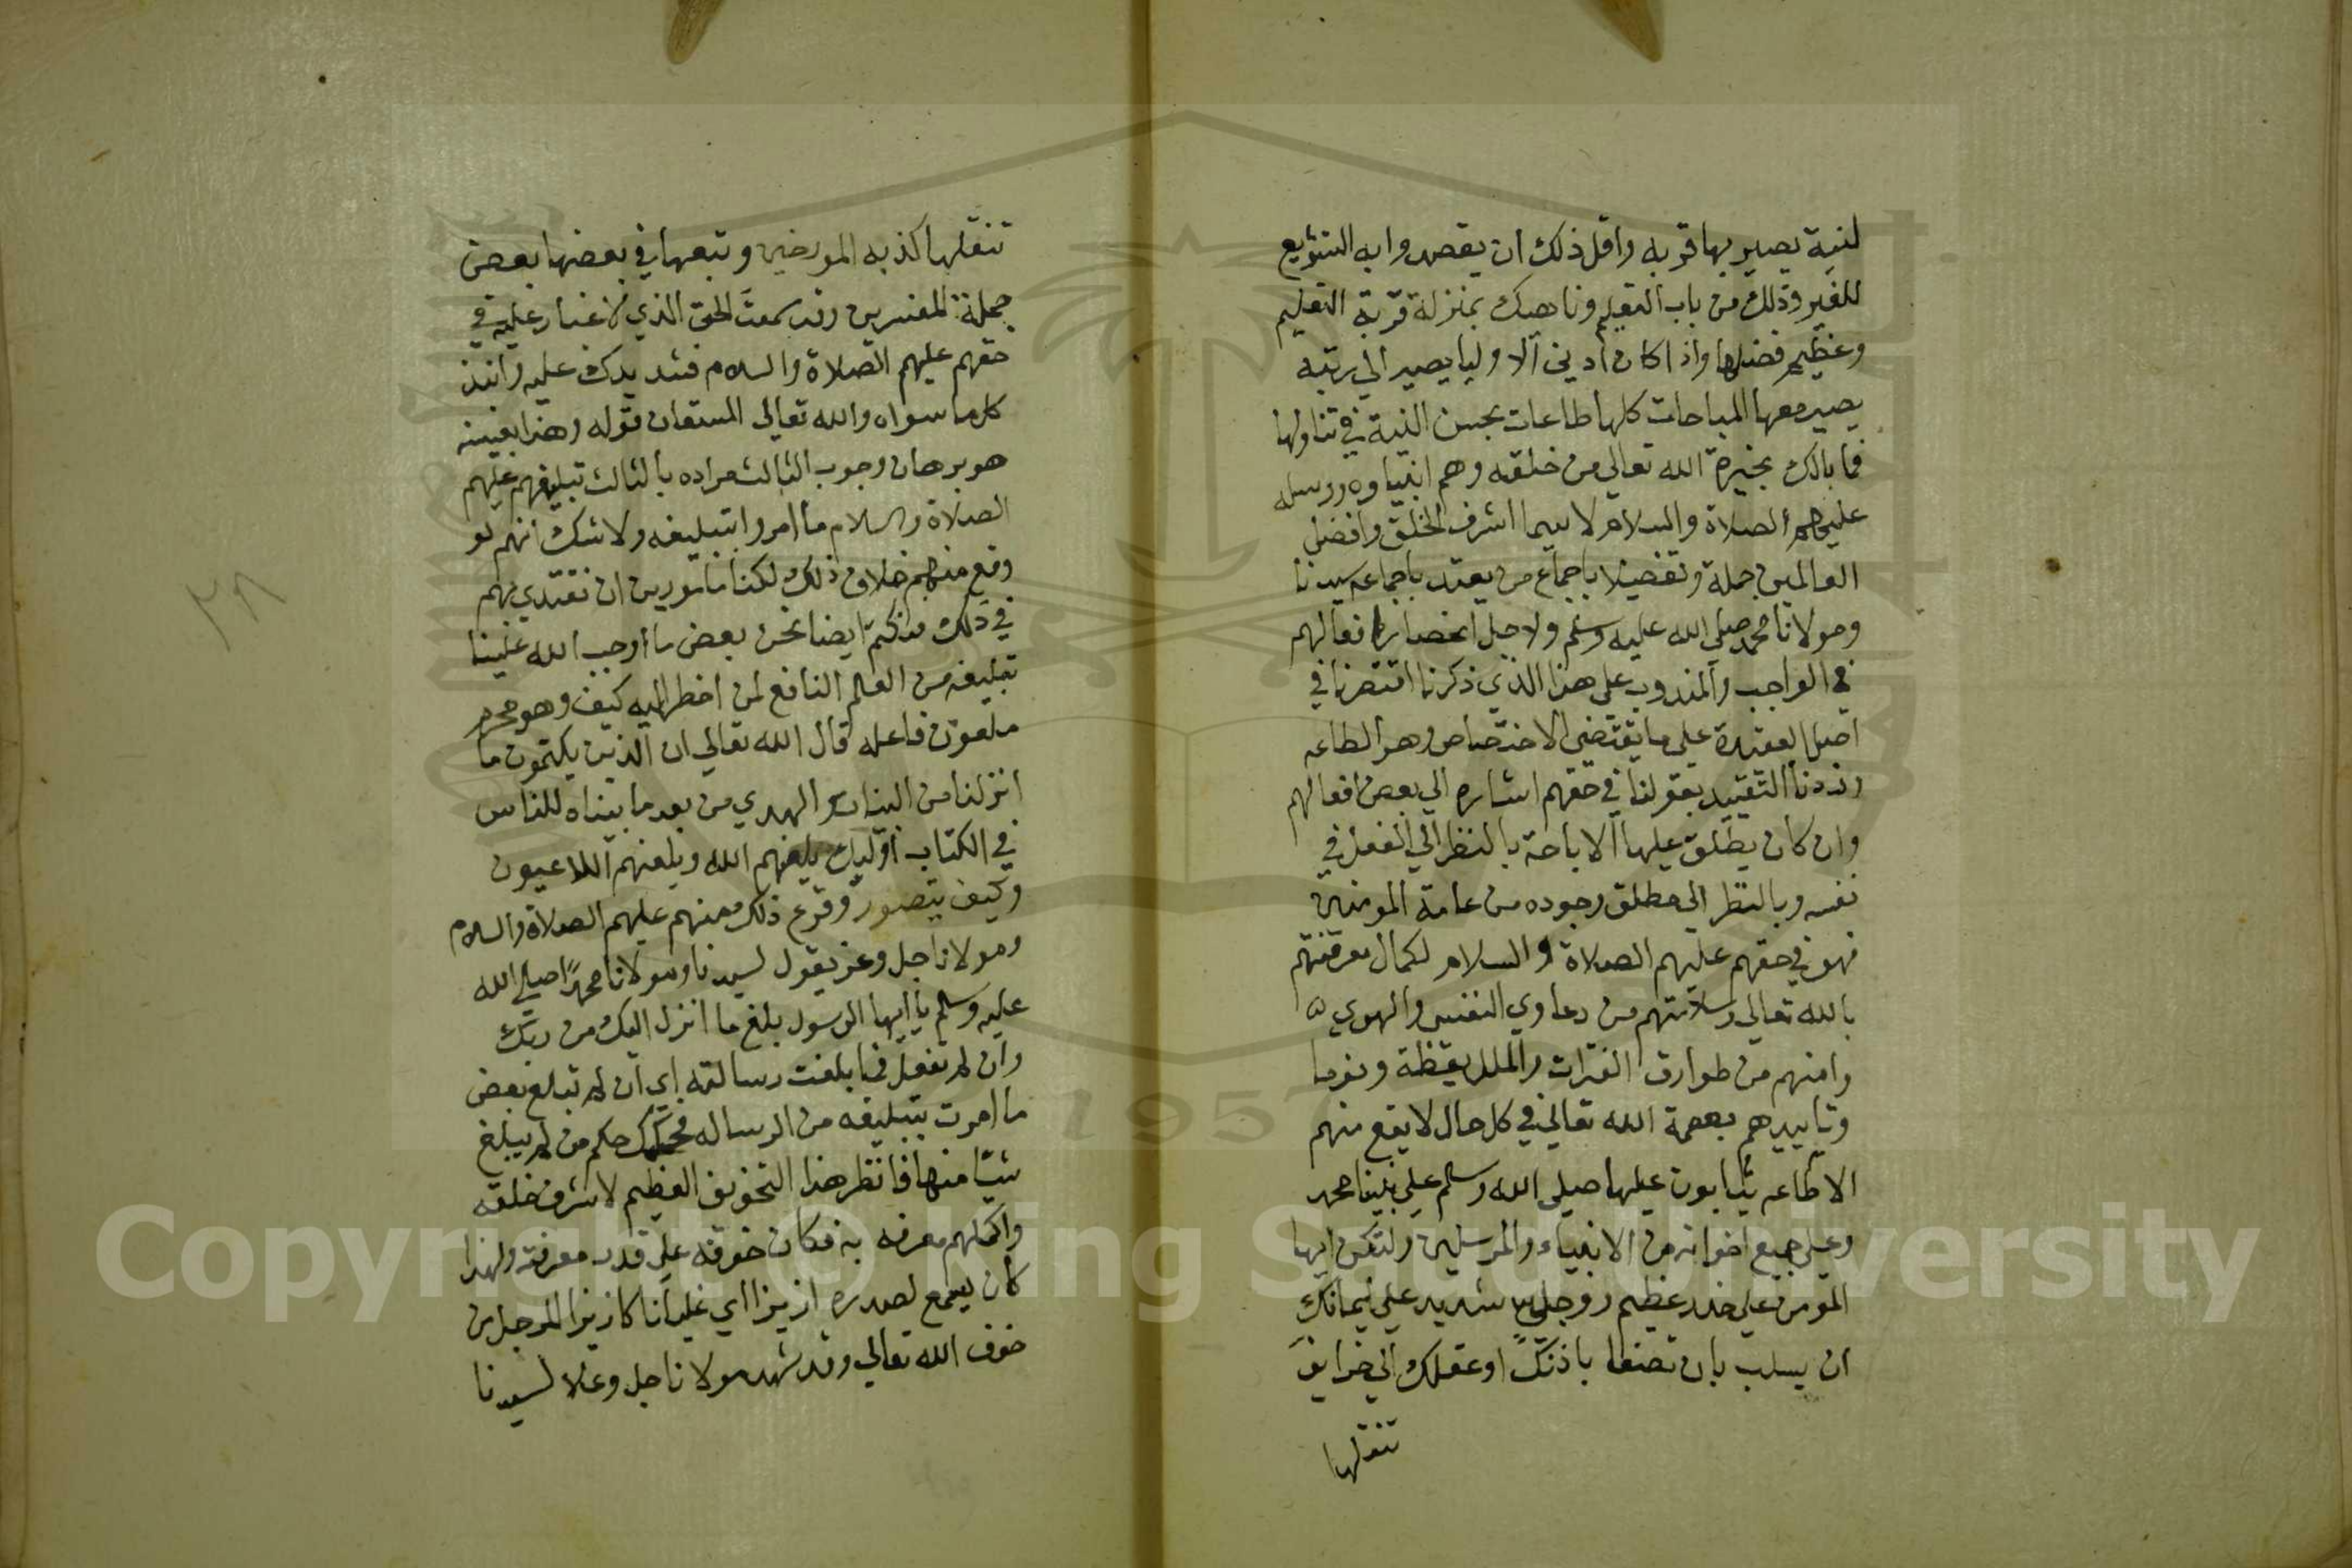 لنية يصير بها قربه واقل ذلك ان يقصدوا به التشريع
للغير وذلك من باب التعليم وناهيك بمنزلة قربة التعليم
وعظيم فضلها واذا كان ادني الاوليا يصير الي رتبه
يصير معها المباحات كلها طاعات بحسن النية في تناولها
فما بالك بخيرة الله تعالي من خلقه وهم انبياوه ورسله
عليهم الصلاة والسلام لا سيما اشرف الخلق وافضل
العالمين جملة وتفضيلا باجماع من يعتد باجماعه سيدنا
ومولانا محمد صلي الله عليه وسلم ولاجل انحصار افعالهم
في الواجب والمندوب علي هذا الذي ذكرنا اقتصرنا في
اصل العقيدة علي ما يقتضي الاختصاص وهو الطاعه
وزدنا التقييد بقولنا في حقهم اشاره الي بعض افعالهم
وان كان يطلق عليها الاباحة بالنظر الي الفعل في
نفسه وبالنظر الي مطلق وجوده من عامة المومنين
فهو في حقهم عليهم الصلاة والسلام لكمال معرفتهم
بالله تعالي وسلامتهم من دعاوي النفس والهوي
وامنهم من طوارق الفترات والملل يقظة ونوما
وتاييدهم بعصمة الله تعالي في كل حال لا يقع منهم
الا طاعه يثابون عليها صلي الله وسلم علي نبينا محمد
وعلي جميع اخوانه من الانبياء والمرسلين ولتكن ايها
المومن علي حذر عظيم ووجل شديد علي ايمانك
ان يسلب بان تصغا باذنك او عقلك الي خرايف
تنقلها
تنقلها كذبه المورخين وتبعها في بعضها بعض
جملة المفسرين وقد سمعت الحق الذي لا غبار عليه في
حقهم عليهم الصلاة والسلام فشد يدك عليه وانبذ
كل ما سواه والله تعالي المستعان قوله وهذا بعينه
هو برهان وجوب الثالث مراده بالثالث تبليغهم عليهم
الصلاة والسلام ما امروا بتبليغه ولا شك انهم لو
وقع منهم خلاف ذلك لكنا مامورين ان نقتدي بهم
في ذلك فنكتم ايضا نحن بعض ما اوجب الله علينا
تبليغه من العلم النافع لمن اضطر اليه كيف وهو محرم
ملعون فاعله قال الله تعالي ان الذين يكتمون ما
انزلنا من البينات والهدي من بعد ما بيناه للناس
في الكتاب اوليك يلعنهم الله ويلعنهم اللاعنون
وكيف يتصور وقوع ذلك منهم عليهم الصلاة والسلام
ومولانا جل وعز يقول لسيدنا ومولانا محمدا صلي الله
عليه وسلم يا ايها الرسول بلغ ما انزل اليك من ربك
وان لم تفعل فما بلغت رسالته اي ان لم تبلغ بعض
ما امرت بتبليغه من الرساله فحكمك حكم من لم يبلغ
شيئا منها فانظر هذا التخويف العظيم لاشرف خلقه
واكملهم معرفه به فكان خوفه علي قدر معرفته ولهذا
كان يسمع لصدره ازيزا اي غليانا كازيز المرجل من
خوف الله تعالي وقد شهد مولانا جل وعلا لسيدنا
٣٨
Copyright © King Saud University
1957